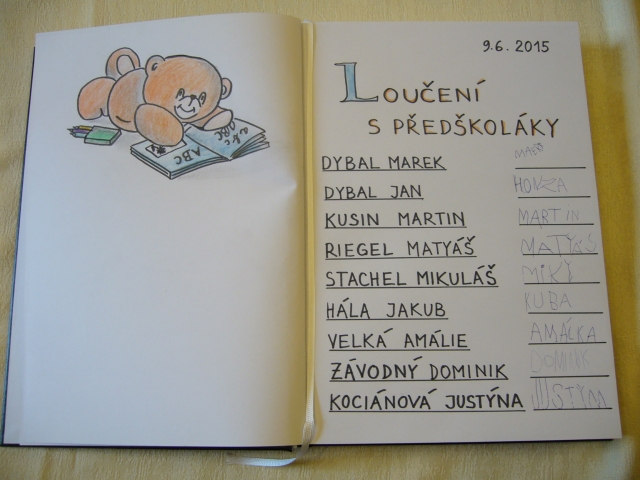 ABC
ABC
9.6.2015
LOUČENÍ
S PŘEDŠKOLÁKY
DYBAL MAREK
DYBAL JAN HONZA
KUSIN MARTIN MARTIN
RIEGEL MATYÁŠ MATYÁŠ
STACHEL MIKULÁŠ MIKY
HÁLA JAKUB KUBA
VELKÁ AMÁLIE AMÁLKA
ZÁVODNÝ DOMINIK DOMINIK
KOCIÁNOVÁ JUSTÝNA